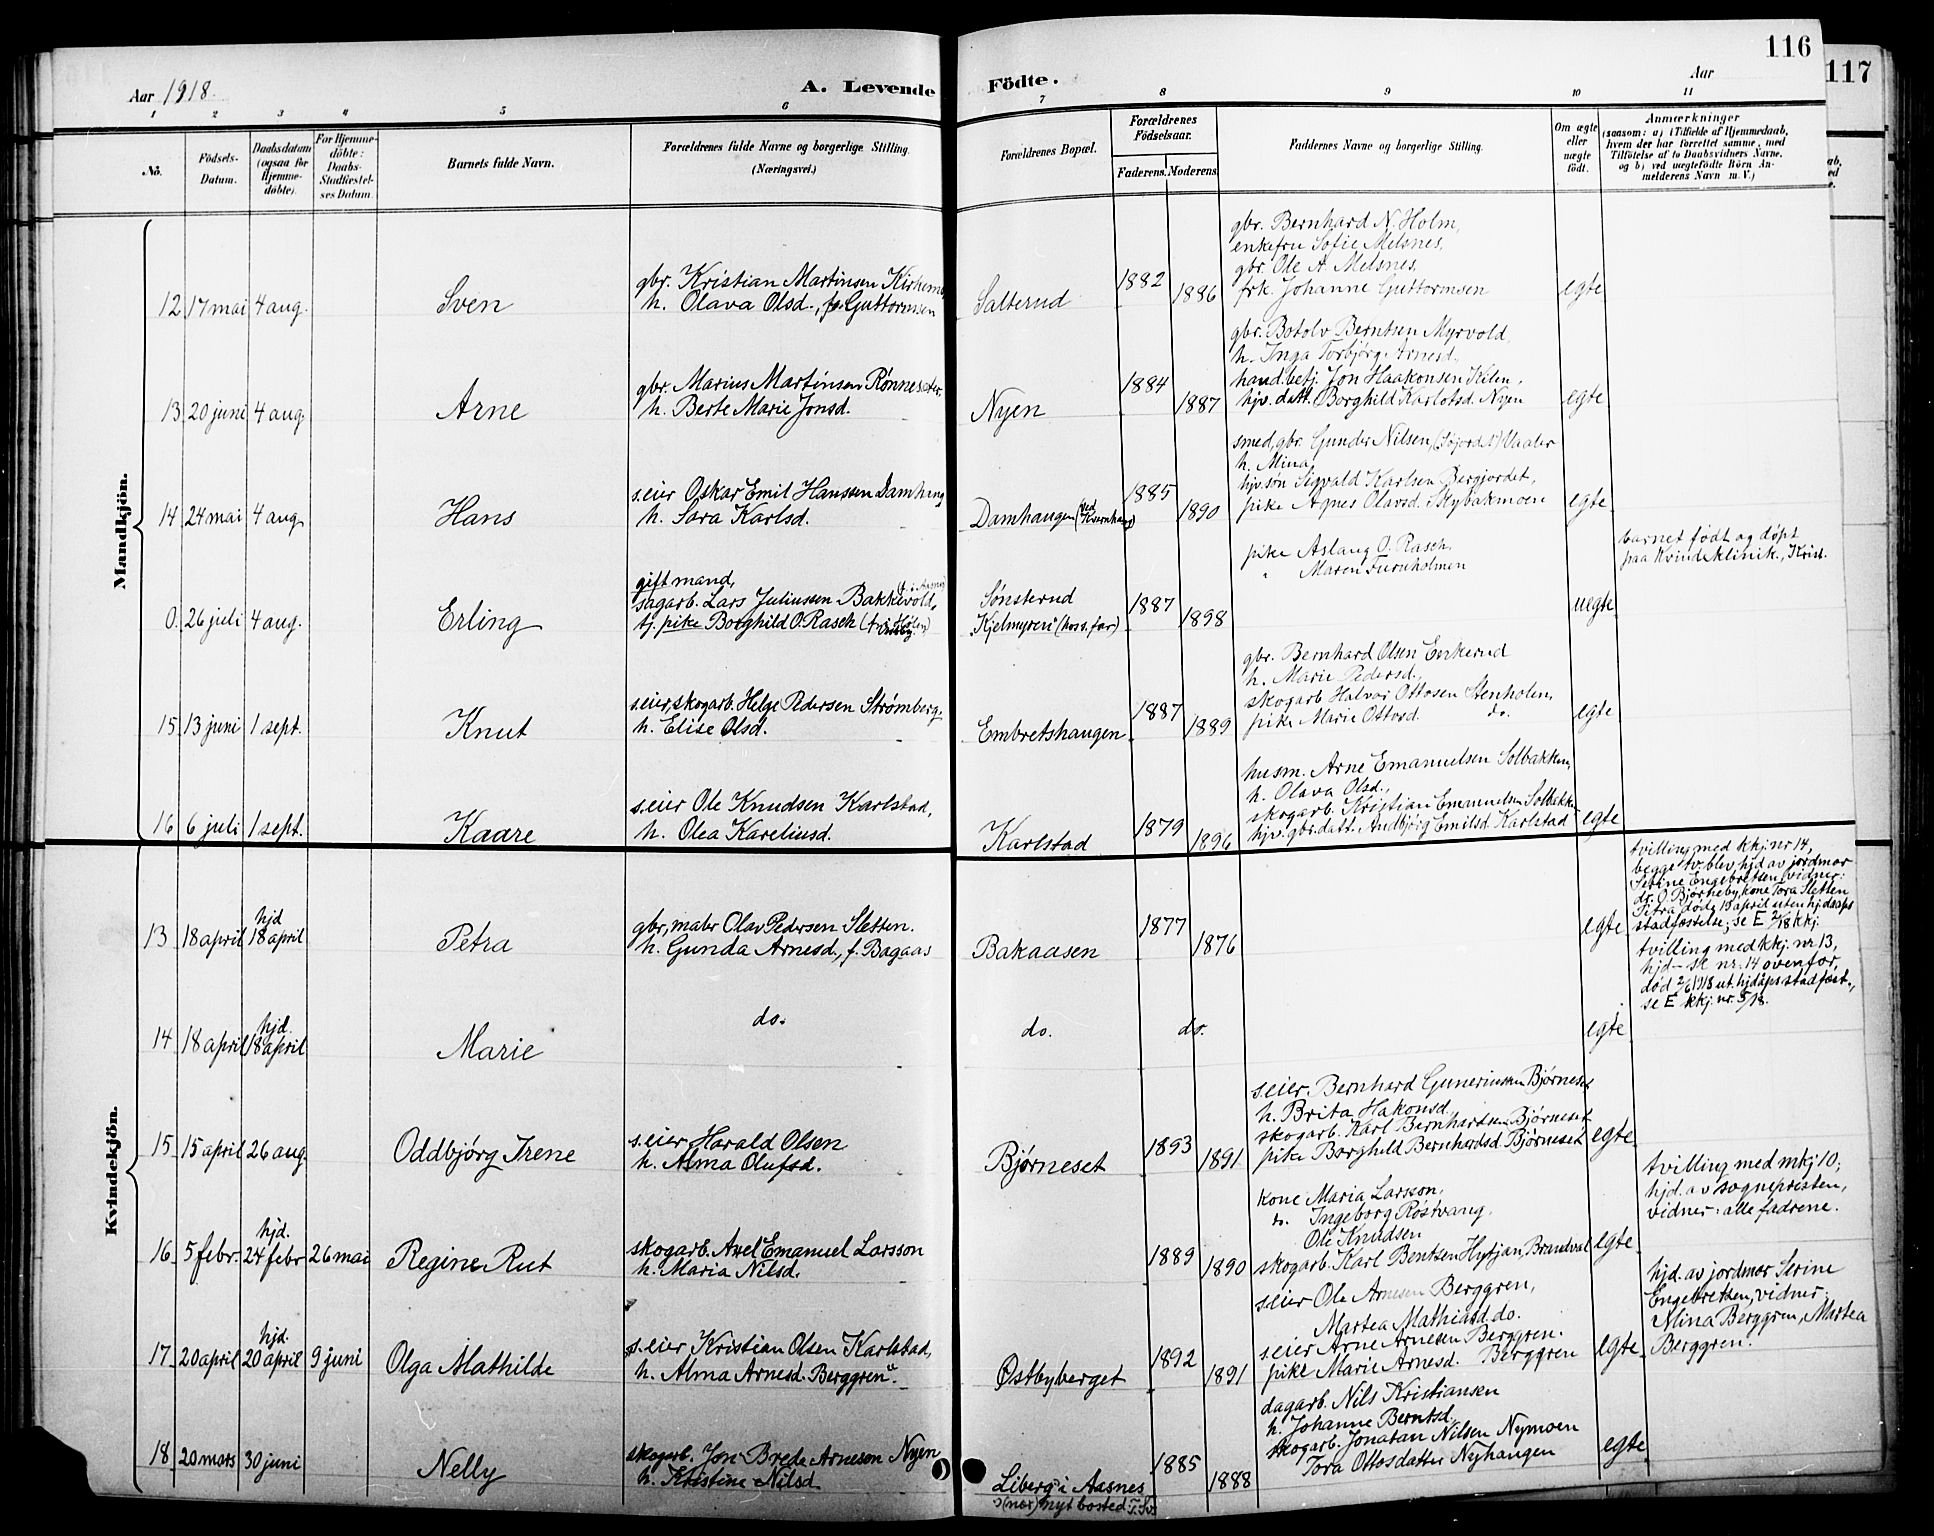 116
117
Aar 1918.
A. Levende Födte.
Aar
1 2 3 4 5 6 7 8 9 10 11
No.
Födsels-Datum.
Daabsdatum (ogsaa for Hjemme-döbte).
For Hjemme-döbte: Daabs-Stadfæstel-ses Datum.
Barnets fulde Navn.
Forældrenes fulde Navne og borgerlige Stilling (Næringsvei.)
Forældrenes Bopæl.
Forældrenes Födselsaar.
Faderens. Moderens.
Faddernes Navne og borgerlige Stilling.
Om ægte eller uægte født.
Anmærkninger
(saasom: a) i Tilfælde af Hjemmedaab, hvem der har forrettet samme, med Tilföielse af to Daabsvidners Navne, og b) ved uægtefödte Börn An-melderens Navn m. V.)
Mandkjön.
gbr. Bernhard N. Holm,
enkefru Sofie Melsnes,
gbr. Ole A. Melsnes,
frk. Johanne Guttormsen
12 17 mai 4 aug. Sven
gbr. Kristian Martinsen
h. Olava Olsd., f. Guttormsen
Salterud 1882 1886 egte
gbr. Botolv Berntsen Myrvold,
h. Inga Torbjørg Arnesd.,
hand.betj. Jon Haakonsen Kilen,
hjv. datt. Borghild Karlotsd. Nyen
13 20 juni 4 aug. Arne
gbr. Marius Martinsen Rønnesæter,
h. Berte Marie Jonsd.
Nyen 1884 1887 egte
smed, gbr. Gunder Nilsen, Vaaler
h. Mina,
hjv. søn Sigvald Karlsen Bergjordet,
pike Agnes Olavsd. Skybakmoen
14 24 mai 4 aug. Hans
s.eier Oskar Emil Hanssen Damhaug
h. Sara Karlsd.
Damhaugen (ved Kvernhaug) 1885 1890 egte
pike Aslaug O. Rasch,
" Maren Furuholmen
barnet født og døpt
paa Kvindeklinik., Krist.
0. 26 juli 4 aug. Erling
gift mand,
sagarb. Lars Juliussen Bakkevold,
tj. pike Borghild O. Rasch
Sønsterud
"Kjelmyren" (hos s. far) 1887 1898 uegte
gbr. Bernhard Olsen Enkerud
h. Marie Pedersd.,
skogarb. Halvor Ottosen Stenholen,
pike Marie Ottosd. do.
15 13 juni 1 sept. Knut
s.eier, skogarb. Helge Pedersen Strømberg,
h. Elise Olsd.
Embretshaugen 1887 1889 egte
husm. Arne Emanuelsen Solbakken,
h. Olava Olsd.,
skogarb. Kristian Emanuelsen Solbakken
hjv. gbr. datt. Andbjørg Emilsd. Karlstad
16 6 juli 1 sept. Kaare
s.eier Ole Knudsen Karlstad,
h. Olea Kareliusd.
Karlstad 1879 1896 egte
Kvindekjön.
tvilling med kkj. nr 14,
begge tv. blev hjd av jordmor
Serine Engebretsen, vidner:
dr. O. Bjørneby, kone Tora Sletten
Petra døde 18 april uten hjdaaps
stadfæstelse; se E 2/18 kkj.
13 18 april hjd 18 april Petra
gbr, maler Olav Pedersen Sletten.
h. Gunda Arnesd., f. Bagaas
Bakaasen 1877 1876 egte
tvilling med kkj. nr 13,
hjd - se nr. 14 ovenfor,
død 2/6 1918 ut. hjdåps stadfæst.,
se E kkj. nr. 5/18.
14 18 april hjd. 18 april Marie
do. do. do. egte
s.eier Bernhard Gunerius­sen Bjørneset
h. Brita Hakonsd.,
skogarb. Karl Bernhardsen Bjørneset
pike Borghild Bernhardsd. Bjørneset
15 15 april 26 aug Oddbjørg Irene
s.eier Harald Olsen
h. Alma Olufsd.
Bjørneset 1893 1891 egte
kone Maria Larsson,
do. Ingeborg Røstvang,
Ole Knudsen
skogarb. Karl Bentsen Hytjan, Brandval
tvilling med mkj 10;
hjd. av sognepresten,
vidner: alle fadrene.
16 5 febr. hjd. 24 febr 26 mai Regine Rut
skogarb. Axel Emanuel Larsson
h. Maria Nilsd.
1889 1890 egte
s.eier Ole Arnesen Berggren,
Martea Mathiasd. do.
s.eier Arne Arnesen Berggren.
pike Marie Arnesd. Berggren
hjd. av jordmor Serine
Engebretsen, vidner:
Mina Berggren, Martea
Berggren.
17 20 april hjd. 20 april 9 juni Olga Mathilde
s.eier Kristian Olsen Karlstad,
h. Alma Arnesd. Berggren".
Østbyberget 1892 1891 egte
dagarb. Nils Kristiansen
h. Johanne Berntsd.,
skogarb. Jonatan Nilsen Nymoen
Tora Ottosdatter Nyhaugen
18 20 mars 30 juni Nelly
skogarb. Jon Brede Arneson Nyen
h. Kristine Nilsd
Liberg i Aasnes
(nær) nyt bosted 1885 1888 egte